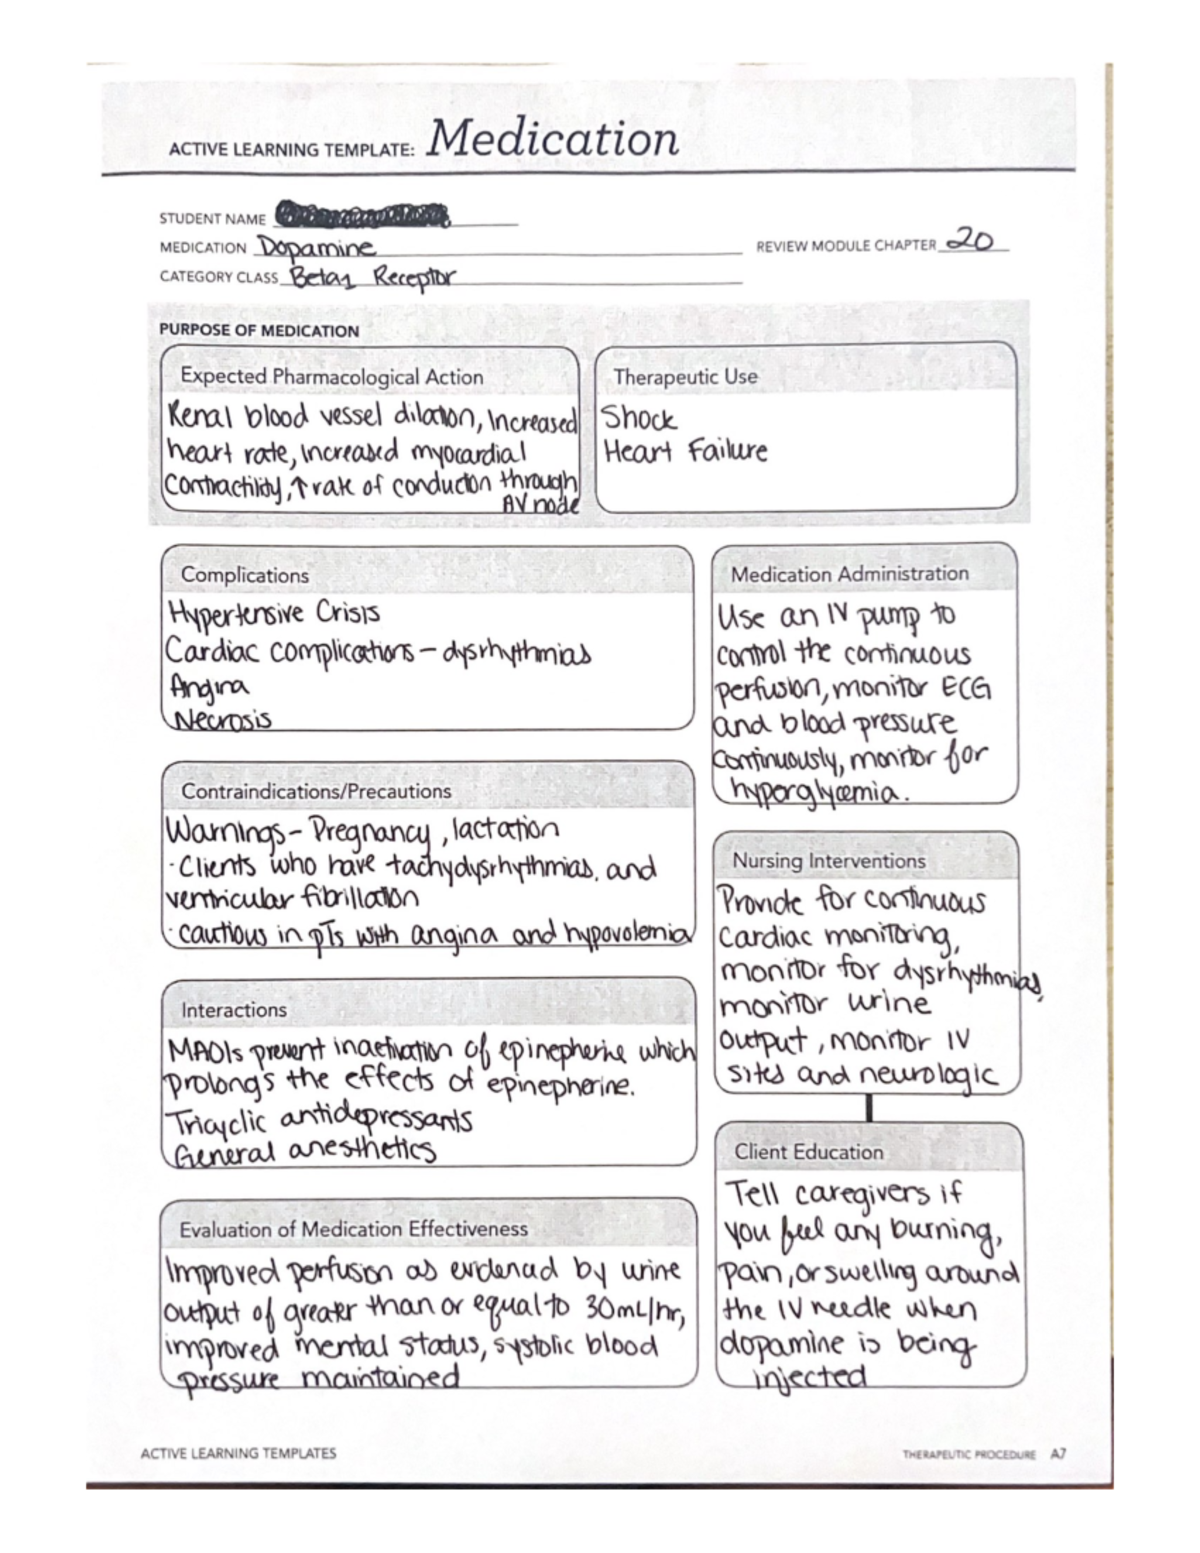 ACTIVE LEARNING TEMPLATE: Medication
STUDENT NAME
MEDICATION Dopamine REVIEW MODULE CHAPTER 20
CATEGORY CLASS Beta1 Receptor
PURPOSE OF MEDICATION
Expected Pharmacological Action
Renal blood vessel dilation, Increased
heart rate, Increased myocardial
Contractility, ↑ rate of conduction through
AV node
Therapeutic Use
Shock
Heart Failure
Complications
Hypertensive Crisis
Cardiac complications - dysrhythmias
Angina
Necrosis
Contraindications/Precautions
Warnings - Pregnancy, lactation
· Clients who have tachydysrhythmias, and
ventricular fibrillation
· cautious in pTs with angina and hypovolemia
Interactions
MAOIs prevent inactivation of epinepherine which
prolongs the effects of epinepherine.
Tricyclic antidepressants
General anesthetics
Evaluation of Medication Effectiveness
Improved perfusion as evidenced by urine
output of greater than or equal to 30mL/hr,
improved mental status, systolic blood
pressure maintained
Medication Administration
Use an IV pump to
control the continuous
perfusion, monitor ECG
and blood pressure
continuously, monitor for
hyperglycemia.
Nursing Interventions
Provide for continuous
Cardiac monitoring,
monitor for dysrhythmias,
monitor urine
output, monitor IV
sites and neurologic
Client Education
Tell caregivers if
you feel any burning,
pain, or swelling around
the IV needle when
dopamine is being
injected
ACTIVE LEARNING TEMPLATES
THERAPEUTIC PROCEDURE A7